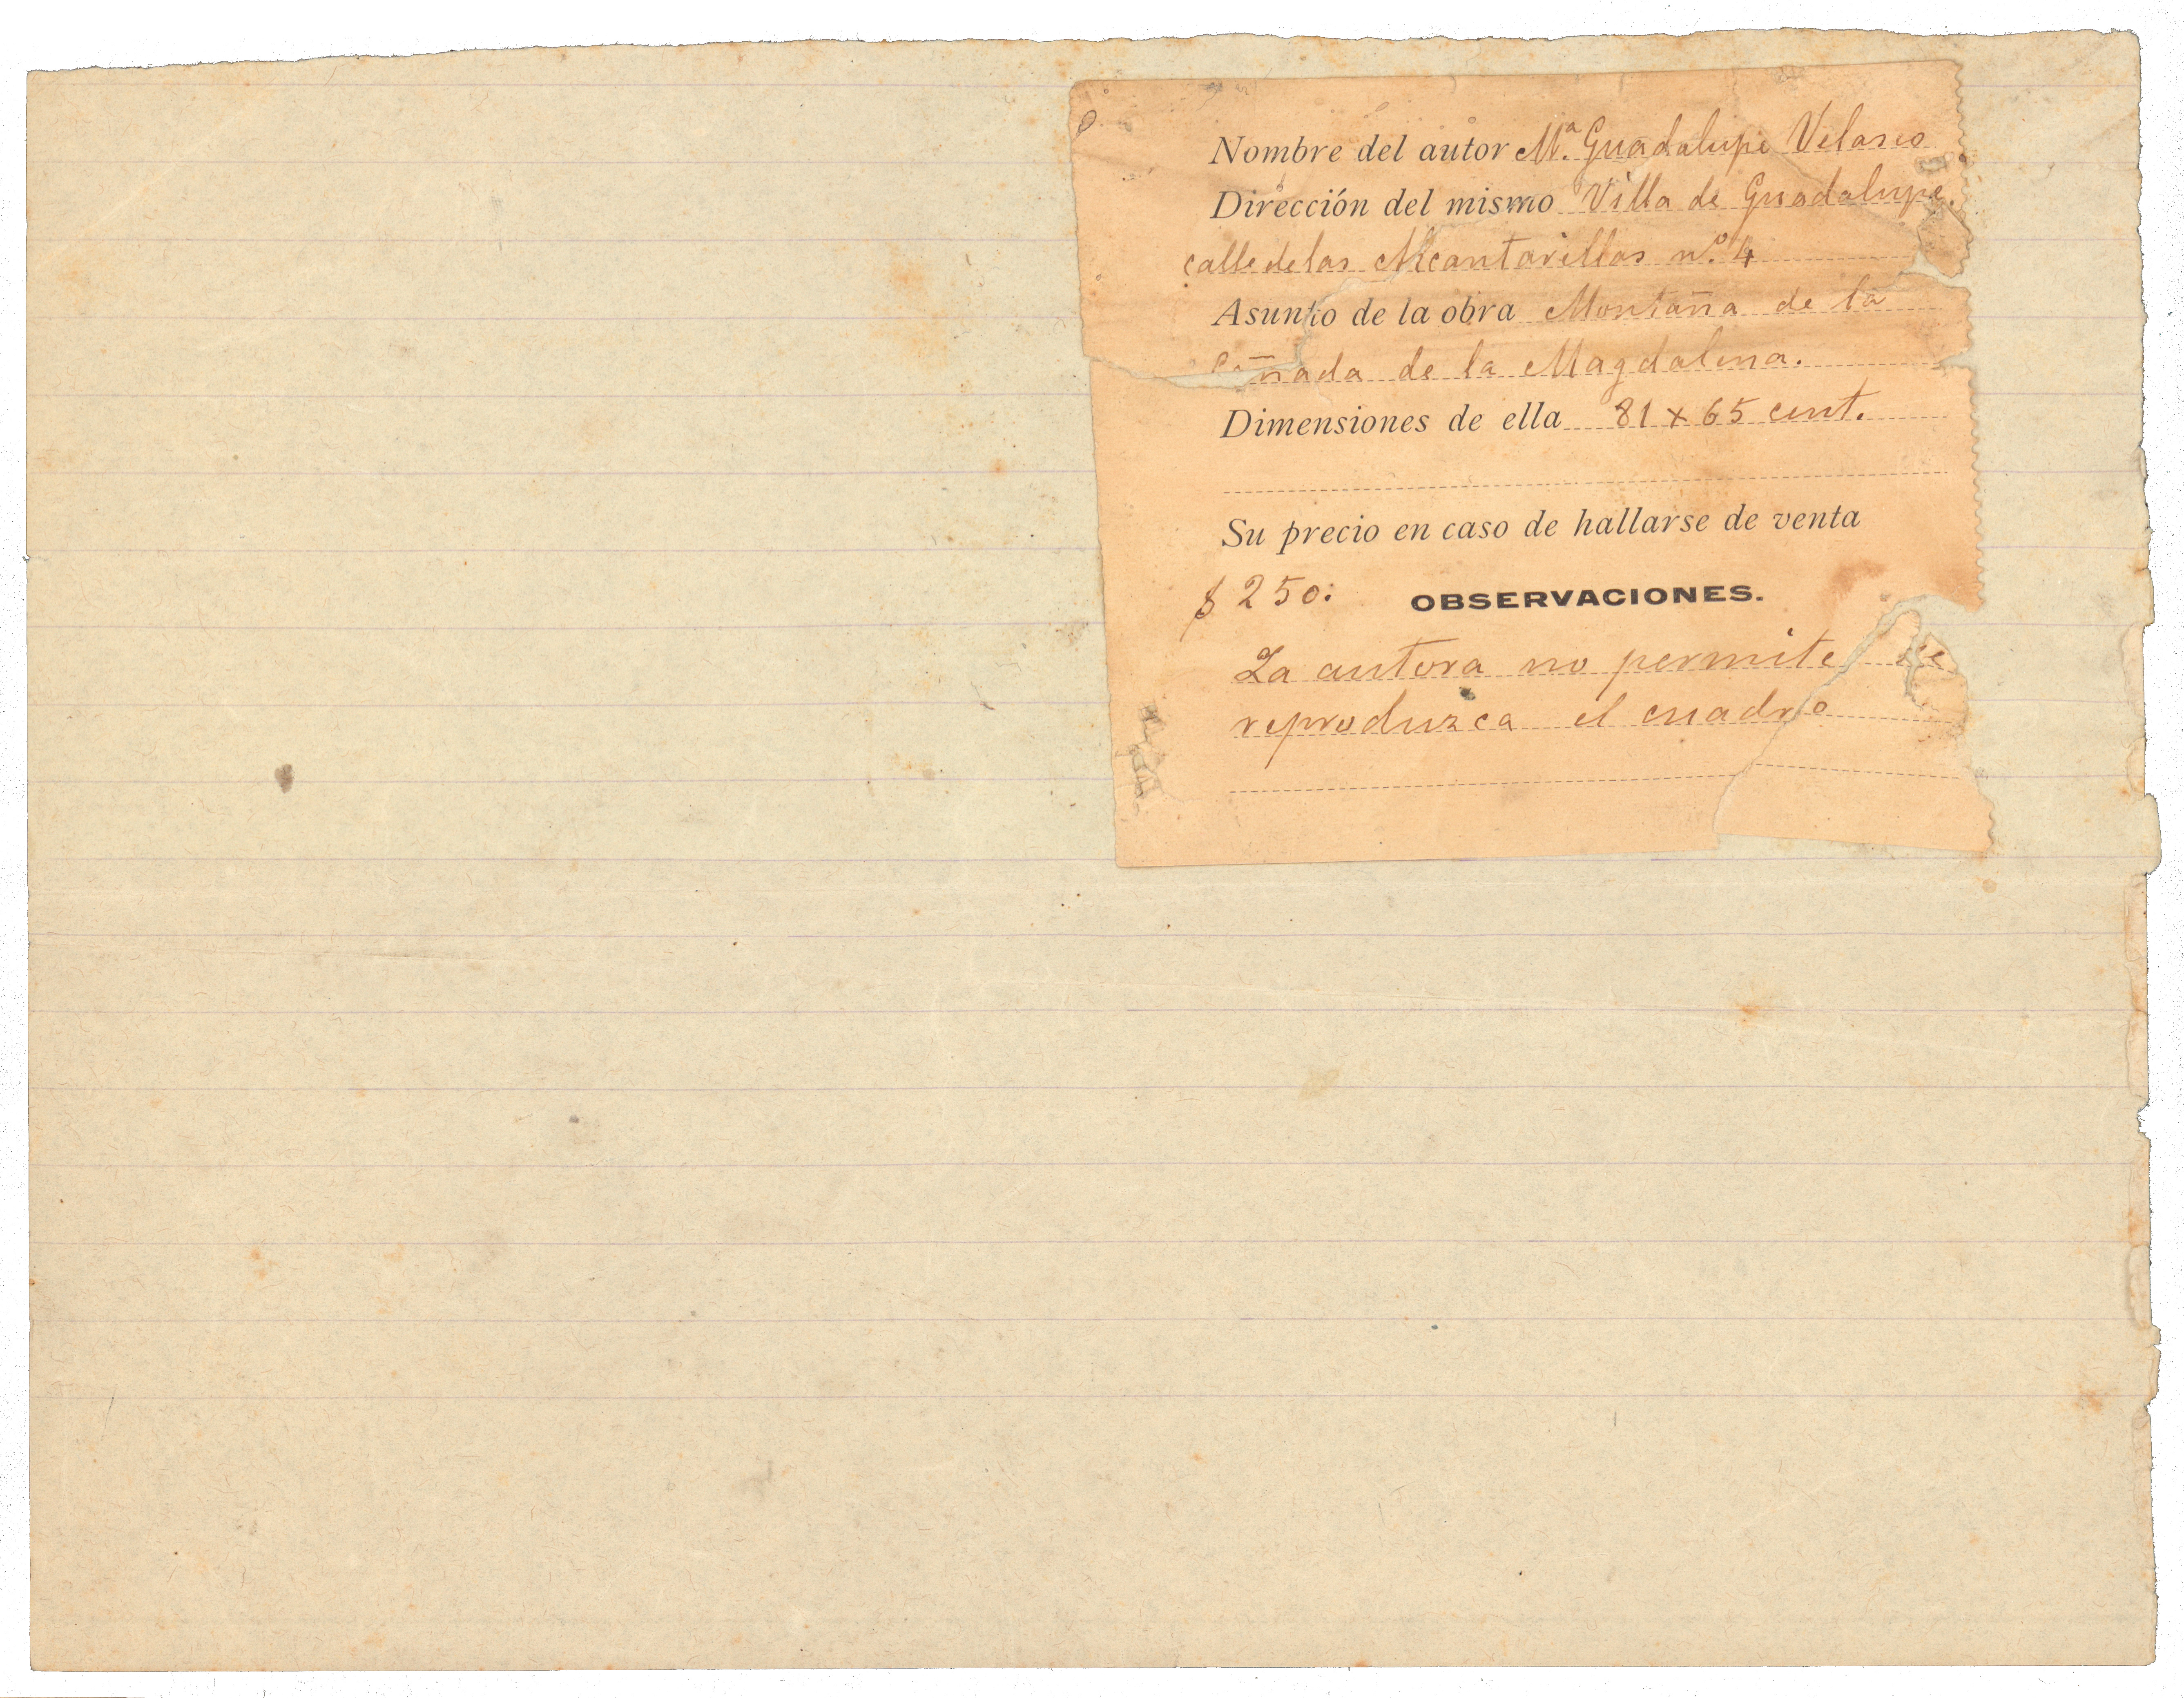 Nombre del autor Mª. Guadalupe Velasco
Dirección del mismo Villa de Guadalupe.
calle de las Alcantarillas nº. 4
Asunto de la obra Montaña de la
Cañada de la Magdalena.
Dimensiones de ella 81 x 65 cent.
Su precio en caso de hallarse de venta
$ 250: OBSERVACIONES.
La autora no permite se
reproduzca el cuadro